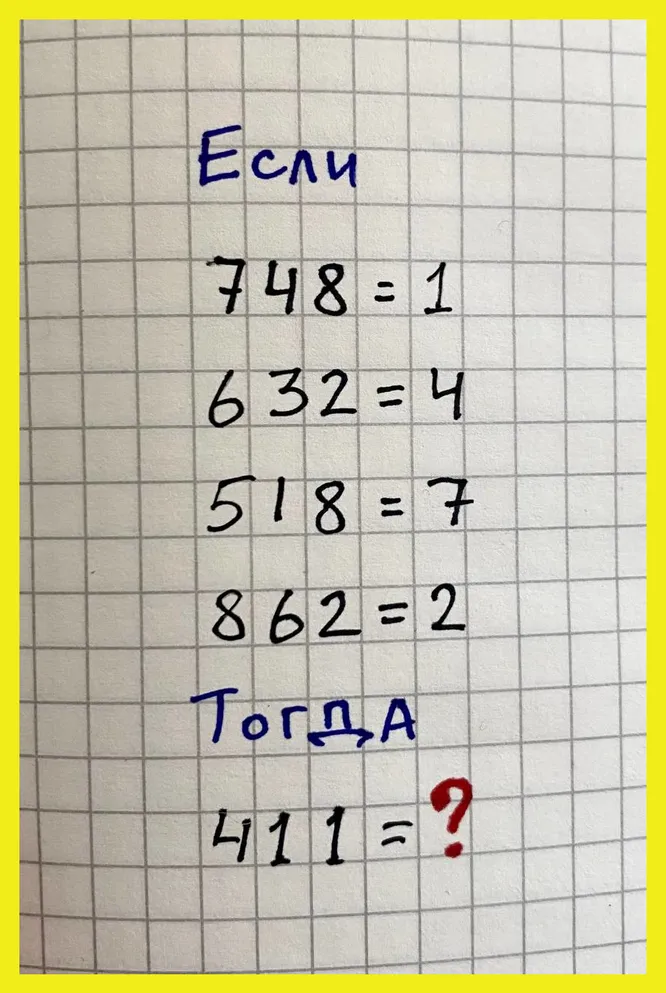 Если
748 = 1
632 = 4
518 = 7
862 = 2
Тогда
411 = ?